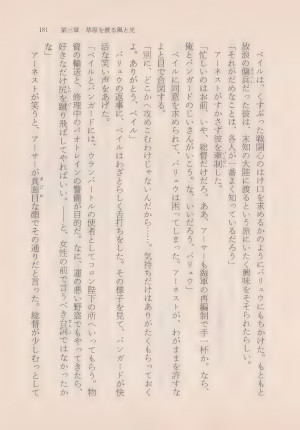 181　第三章　草原を渡る風と光
ベイルは、くすぶった戦闘心のはけ口を求めるかのようにバリュウにもちかけた。もともと
放浪の傭兵だった彼は、未知の大陸に渡るという旅にいたく興味をそそられたらしい。
「それがだめなことは、各人が一番よく知っているだろう」
アーネストがすかさず彼を牽制した。
「忙しいのはお前、いや、総督だけだろ。ああ、アーサーも海軍の再編制で手一杯か。なら、
俺とバンガードのじいさんがいこう。な、いいだろ、バリュウ」
ベイルに同意を求められて、バリュウは困ってしまった。アーネストが、わがままを許すな
よと目で合図する。
「別に、どこかへ攻めこむわけじゃないんだから……。気持ちだけはありがたくもらっておく
よ。ありがとう、ベイル」
バリュウの返事に、ベイルはわざとらしく舌打ちをした。その様子を見て、バンガードが快
活な笑い声をあげた。
「ベイルとバンガードには、ウランバートルの使者としてコロン陛下の所へいってもらう。物
資の輸送と、修理中のパオトレインの警備が目的だ。なに、運の悪い野盗でもやってきたら、
好きなだけ尻を蹴り飛ばしてやればいい。――と、女性の前で言うべき台詞ではなかったか
な」
アーネストが笑うと、アーサーが真面目な顔でその通りだと言った。総督が少しむっとして